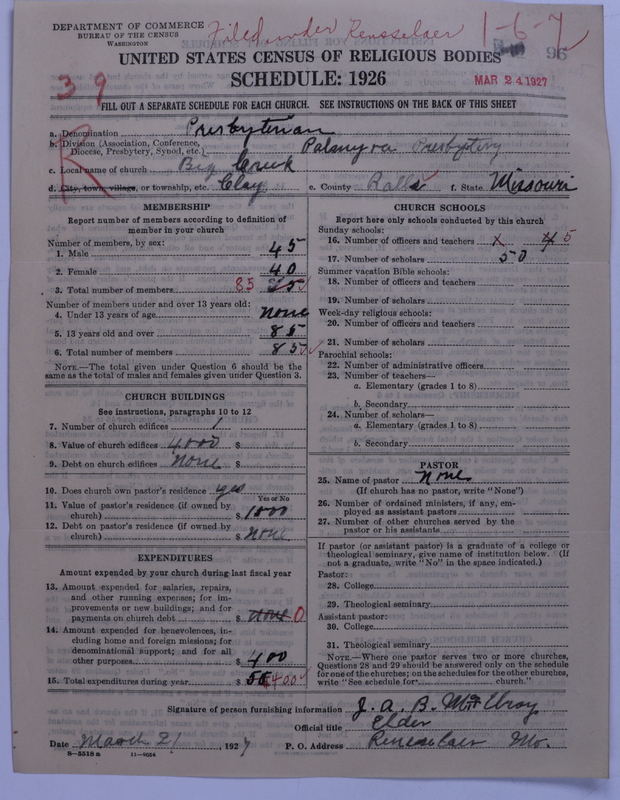 DEPARTMENT OF COMMERCE
BUREAU OF THE CENSUS
WASHINGTON
Filed under Rensselaer 1-6-7
96
UNITED STATES CENSUS OF RELIGIOUS BODIES
SCHEDULE: 1926
MAR 24 1927
39
FILL OUT A SEPARATE SCHEDULE FOR EACH CHURCH. SEE INSTRUCTIONS ON THE BACK OF THIS SHEET
R
a. Denomination Presbyterian
b. Division (Association, Conference, Diocese, Presbytery, Synod, etc.) Palmyra Presbytery
c. Local name of church Big Creek
d. City, town, village, or township, etc. Clay e. County Ralls f. State Missouri
MEMBERSHIP
Report number of members according to definition of
member in your church
Number of members, by sex:
1. Male 45
2. Female 40
3. Total number of members 85
Number of members under and over 13 years old:
4. Under 13 years of age none
5. 13 years old and over 85
6. Total number of members 85
NOTE.—The total given under Question 6 should be
same as the total of males and females given under Question 3.
CHURCH BUILDINGS
See instructions, paragraphs 10 to 12
7. Number of church edifices 1
8. Value of church edifices 4000 $
9. Debt on church edifices none $
10. Does church own pastor's residence yes
Yes or No
11. Value of pastor's residence (if owned by
church) $ 1000
12. Debt on pastor's residence (if owned by
church) $ none
EXPENDITURES
Amount expended by your church during last fiscal year
13. Amount expended for salaries, repairs,
and other running expenses; for im-
provements or new buildings; and for
payments on church debt $ none 0
14. Amount expended for benevolences, in-
cluding home and foreign missions; for
denominational support; and for all
other purposes $ 400
15. Total expenditures during year $ 400
CHURCH SCHOOLS
Report here only schools conducted by this church
Sunday schools:
16. Number of officers and teachers x 5
17. Number of scholars 50
Summer vacation Bible schools:
18. Number of officers and teachers
19. Number of scholars
Week-day religious schools:
20. Number of officers and teachers
21. Number of scholars
Parochial schools:
22. Number of administrative officers
23. Number of teachers—
a. Elementary (grades 1 to 8)
b. Secondary
24. Number of scholars—
a. Elementary (grades 1 to 8)
b. Secondary
PASTOR
25. Name of pastor None
(If church has no pastor, write "None")
26. Number of ordained ministers, if any, em-
ployed as assistant pastors
27. Number of other churches served by the
pastor or his assistants
If pastor (or assistant pastor) is a graduate of a college or
theological seminary, give name of institution below. (If
not a graduate, write "No" in the space indicated.)
Pastor:
28. College
29. Theological seminary
Assistant pastor:
30. College
31. Theological seminary
NOTE.—Where one pastor serves two or more churches,
Questions 28 and 29 should be answered only on the schedule
for one of the churches; on the schedules for the other churches,
write "See schedule for church."
Signature of person furnishing information J. A. B. McElroy
Official title Elder
Date March 21, 1927 P. O. Address Rensselaer Mo.
8-5518 a 11-9054